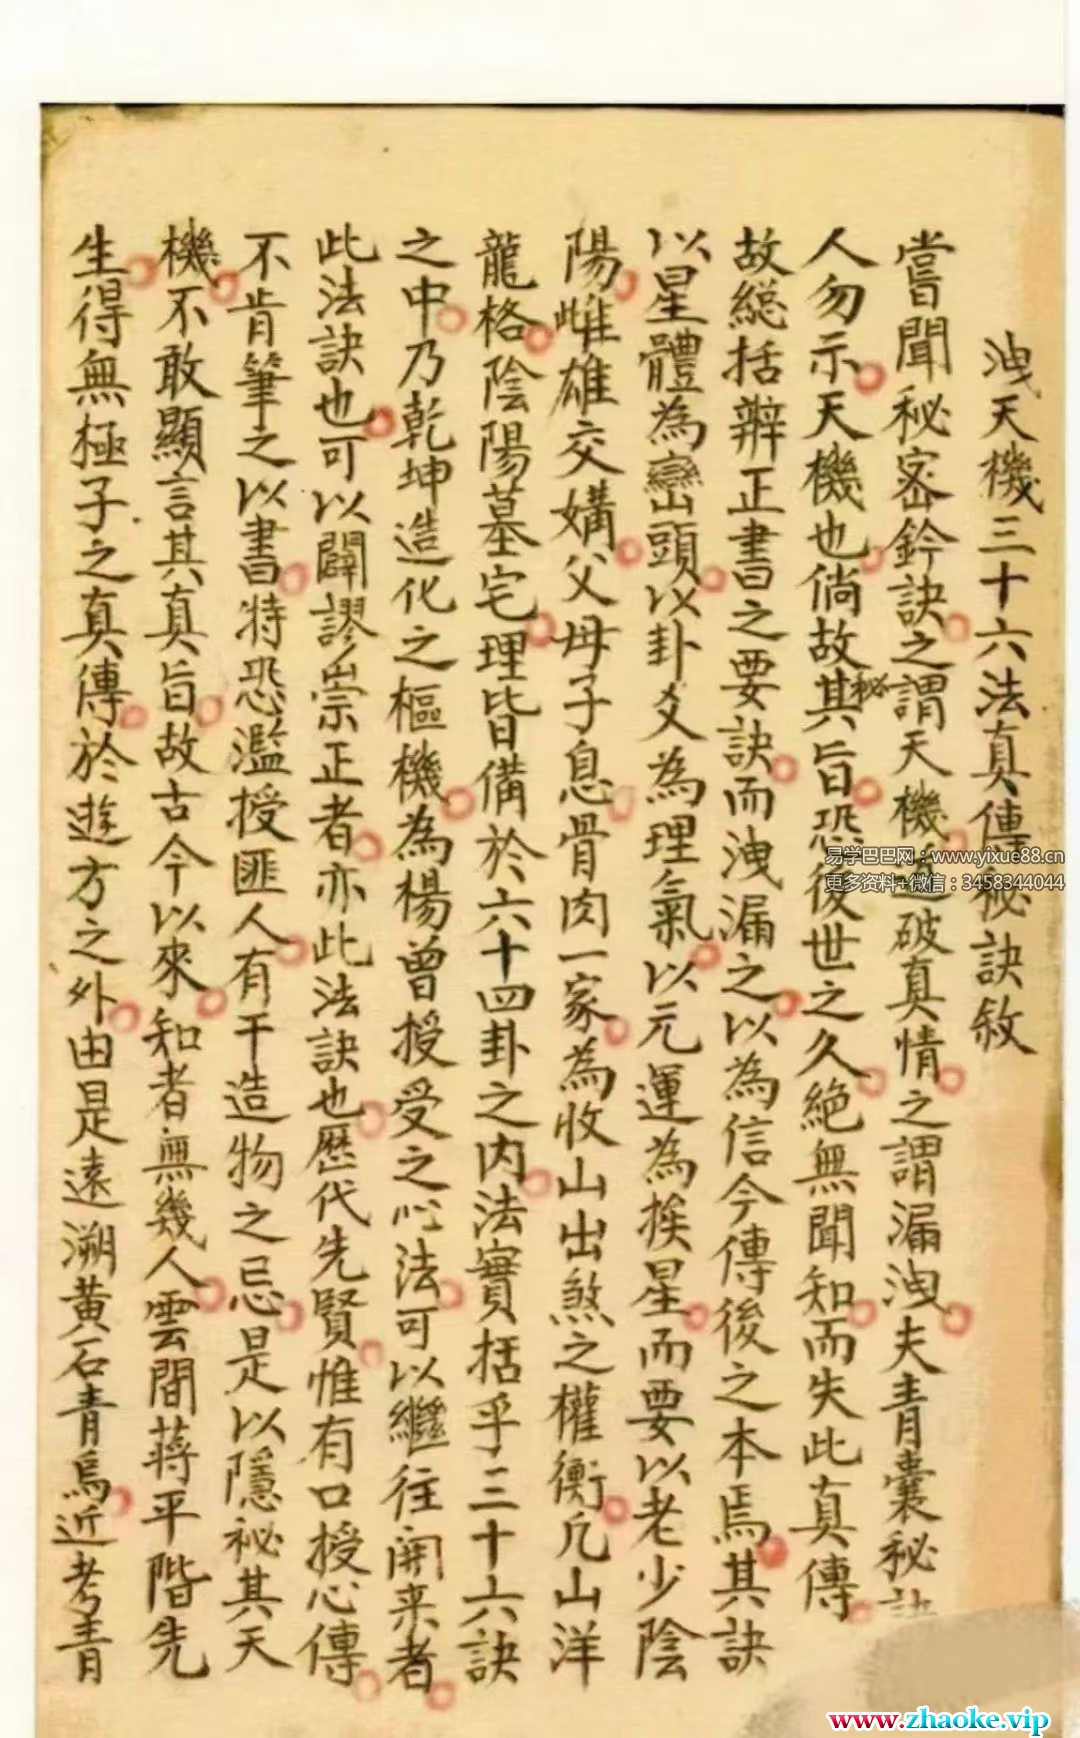 洩天機三十六法真傳秘訣敘
嘗聞秘密鈐訣之謂天機道破真情之謂漏洩夫青囊秘訣
人勿示天機也倘故其秘旨恐後世之久絕無聞知而失此真傳
故總括辨正書之要訣而洩漏之以為信今傳後之本焉其訣
以星體為巒頭以卦爻為理氣以元運為挨星而要以老少陰
陽雌雄交媾父母子息骨肉一家為收山出煞之權衡凡山洋
龍格陰陽墓宅理皆備於六十四卦之內法實括乎三十六訣
之中乃乾坤造化之樞機為楊曾授受之心法可以繼往開来者
此法訣也可以闢謬崇正者亦此法訣也歷代先賢惟有口授心傳
不肯筆之以書特恐濫授匪人有干造物之忌是以隱秘其天
機不敢顯言其真旨故古今以來知者無幾人雲間蔣平階先
生得無極子之真傳於遊方之外由是遠溯黃石青烏近考青
易学巴巴网：www.yixue88.cn
更多资料+微信：3458344044
www.zhaoke.vip